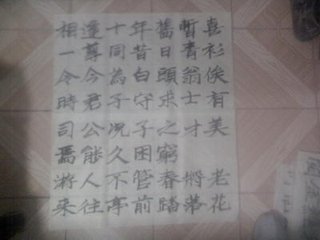 相逢十年舊暫喜
一尊同昔日青衫
令今為白頭翁俟
時君子守求士有
司公況子之才美
焉能久困窮
游人不管春將老
來往亭前踏落花